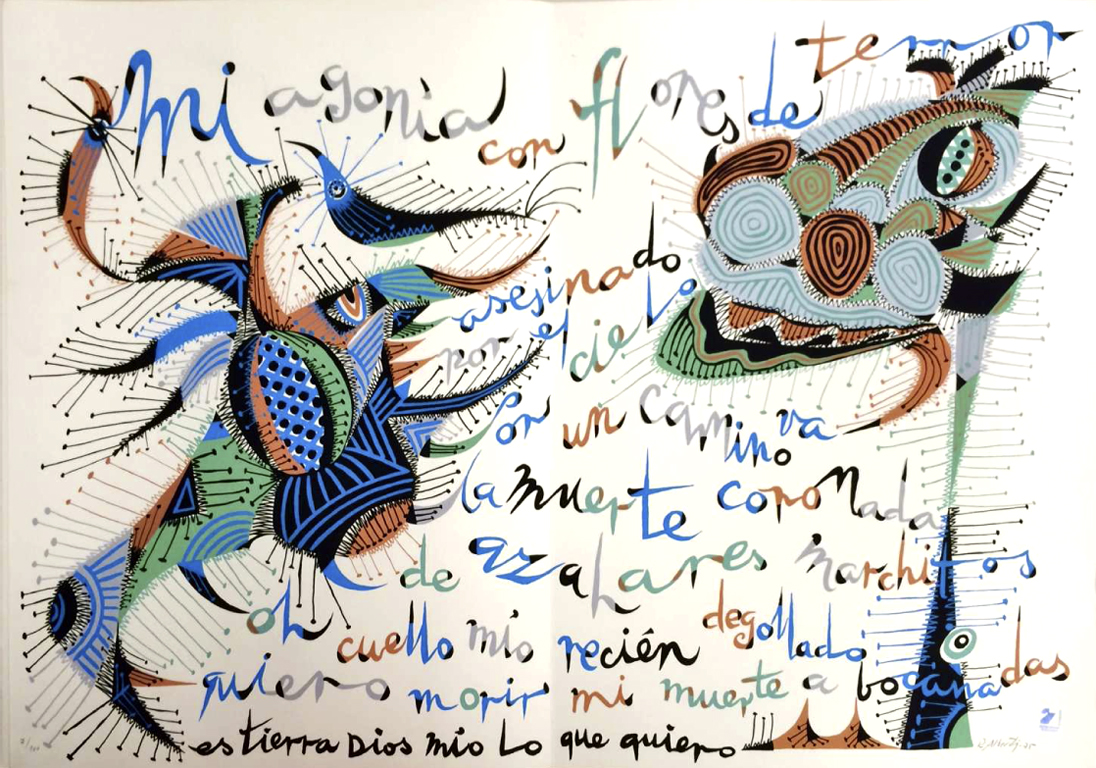 mi agonía
con flores de temor
asesinado
por el cielo
Por un camino va
la muerte coronada
de azahares marchitos
oh cuello mío recién degollado
quiero morir mi muerte a bocanadas
es tierra Dios mío lo que quiero